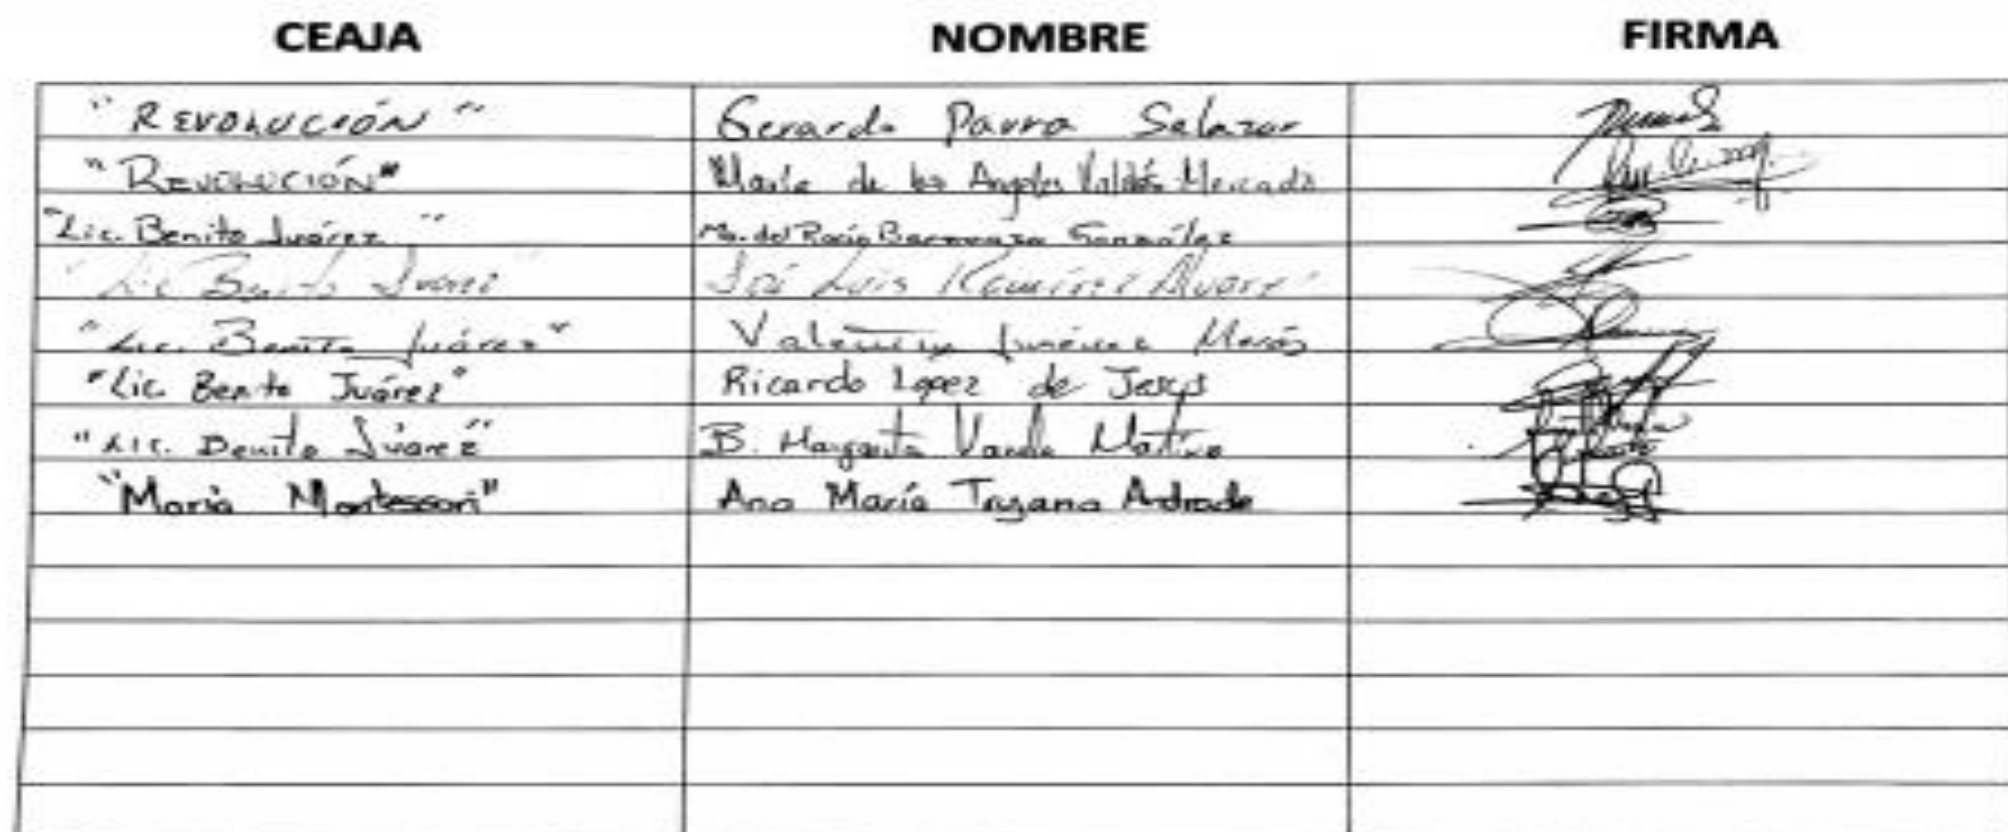 CEAJA NOMBRE FIRMA
"REVOLUCIÓN" Gerardo Parra Salazar
"REVOLUCIÓN" María de los Angeles Valdés Mercado
"Lic. Benito Juárez" Ma. del Rocío González
"Lic Benito Juarez" José Luis Ramírez Alvarez
"Lic. Benito Juárez" Valentin Jiménez
"Lic. Benito Juárez" Ricardo Lopez de Jesús
"Lic. Benito Júarez" B. Margarita
"María Montessori" Ana María Andrade